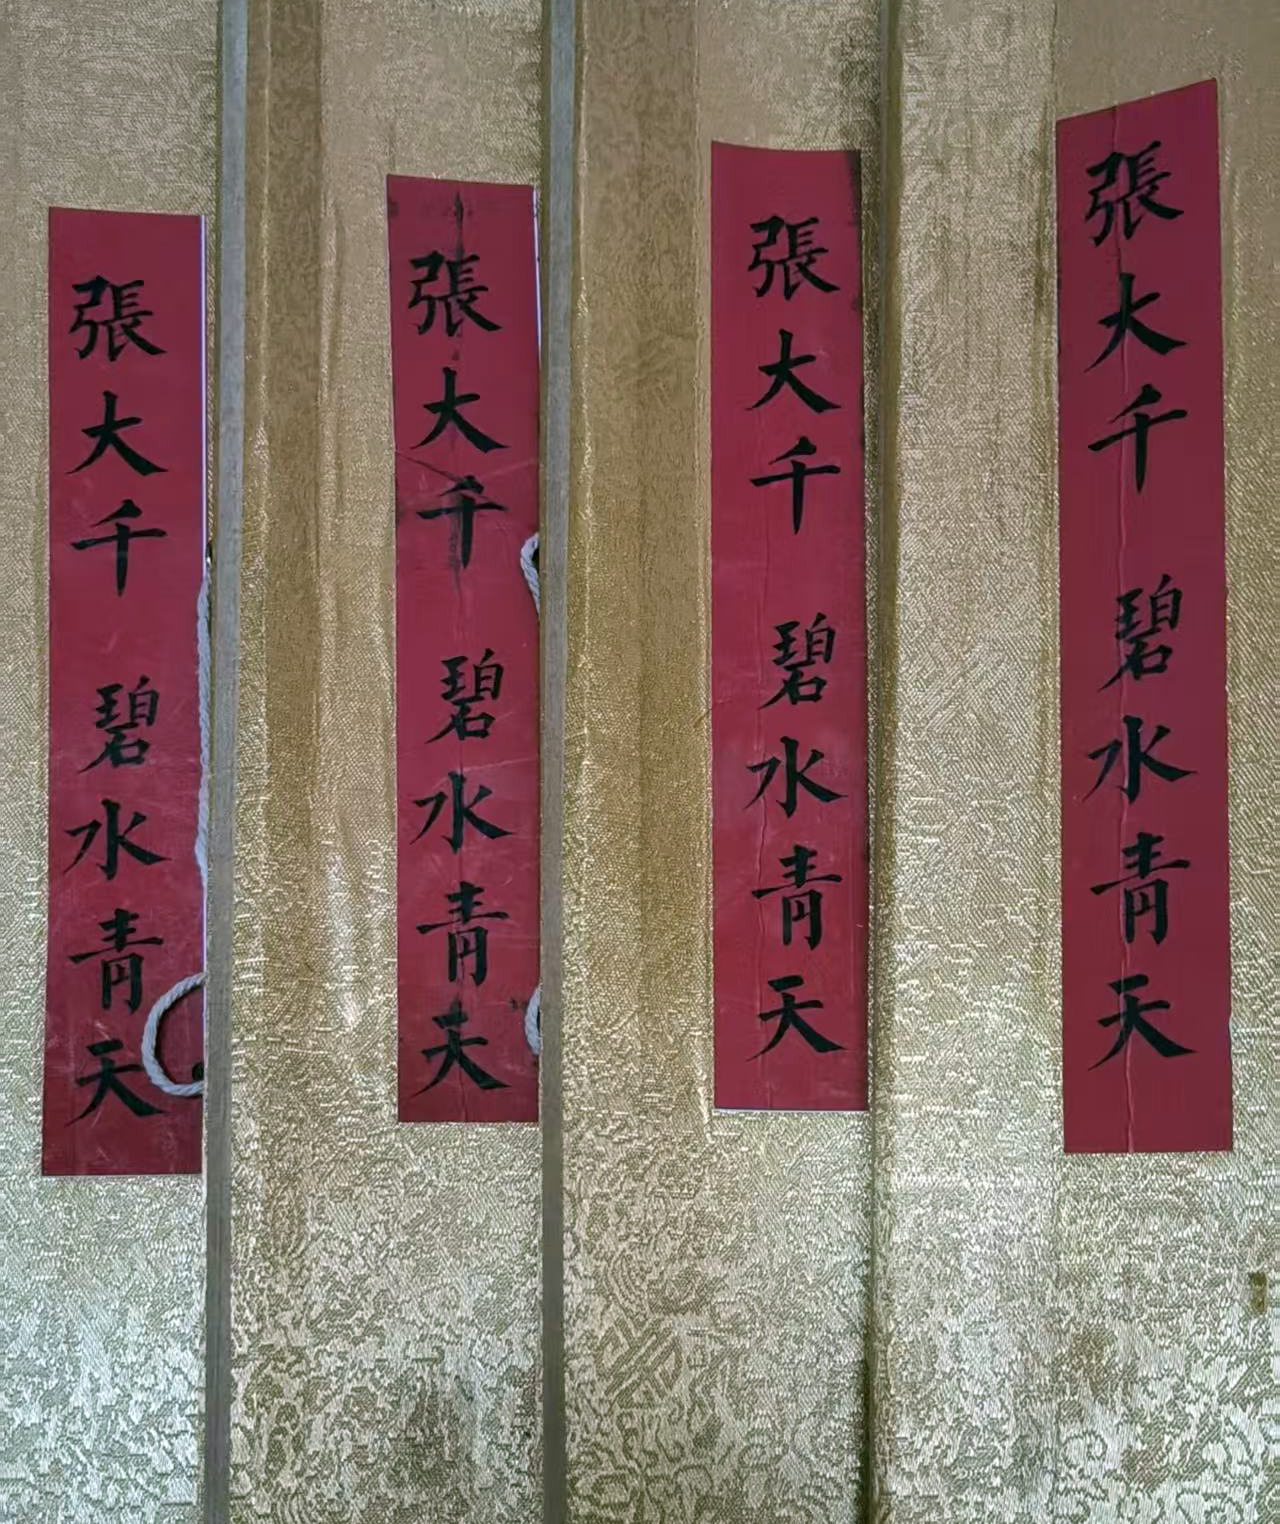 張大千 碧水青天
張大千 碧水青天
張大千 碧水青天
張大千 碧水青天